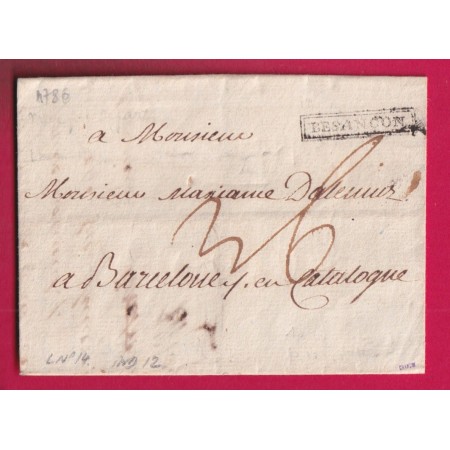 1786
BESANCON
a Monsieur
Monsieur Mariane
36
a Barcelone en Catalogne
LN°14 IND 12